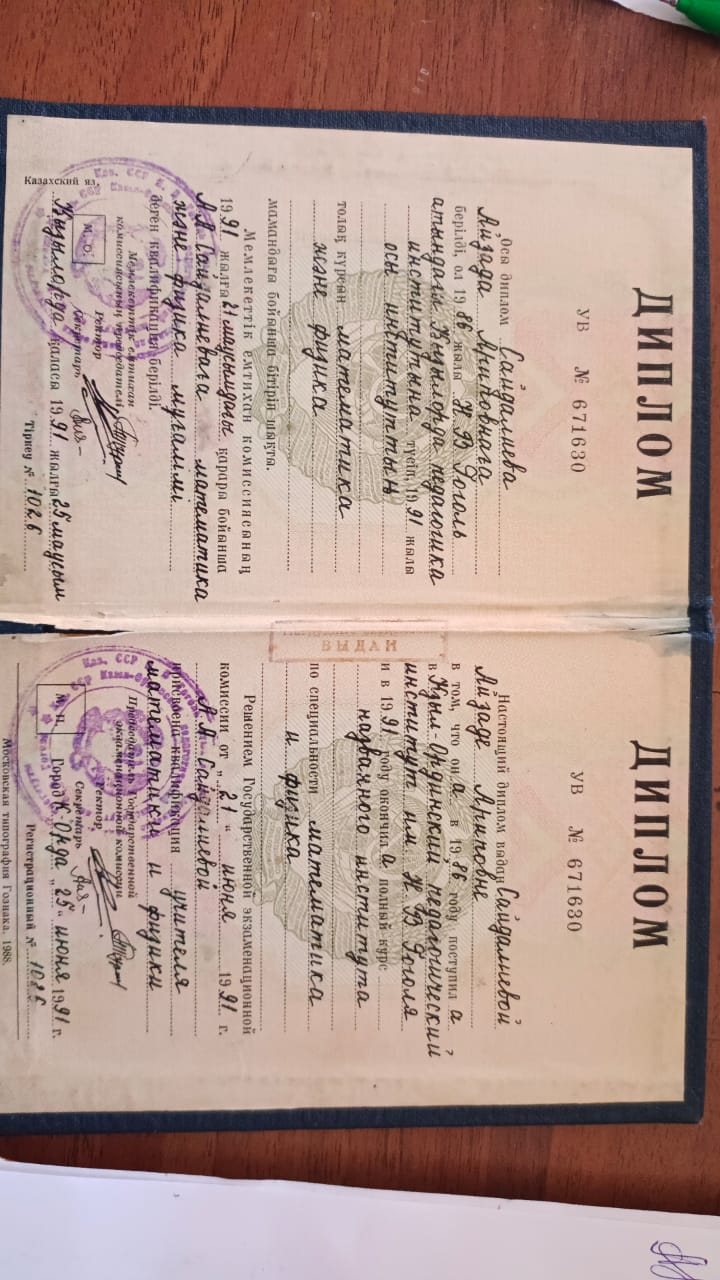 ДИПЛОМ
УВ № 671630
Осы диплом Сайдалиева
Ляззада Ариповнаға
берілді, ол 1986 жылы Н В Гоголь
атындағы Қызылорда педагогика
институтына түсіп, 1991 жылы
осы институттың
толық курсын математика
және физика
мамандығы бойынша бітіріп шықты.
Мемлекеттік емтихан комиссиясының
1991 жылғы 21 маусымдағы қарары бойынша
Л А Сайдалиеваға математика
және физика мұғалімі
деген квалификация берілді.
Казахский яз.
Мемлекеттік емтихан
комиссиясының председателі
Ректор
М. О.
Секретарь
Қызылорда қаласы 1991 жылғы 25 маусым
Тіркеу № 1026
ДИПЛОМ
УВ № 671630
ВЫДАН
Настоящий диплом выдан Сайдалиевой
Ариповне
в том, что он а в 1986 году поступил а
в Кзыл-Ординский педагогический
институт им Н В Гоголя
и в 1991 году окончил а полный курс
названного института
по специальности математика
и физика
Решением Государственной экзаменационной
комиссии от „ 21 “ июня 1991 г.
Сайдалиевой
присвоена квалификация учителя
математики и физики
Председатель Государственной
экзаменационной комиссии
Ректор
Секретарь
М. П.
Город К-Орда „25“ июня 1991 г.
Регистрационный № 1026
Московская типография Гознака. 1988.